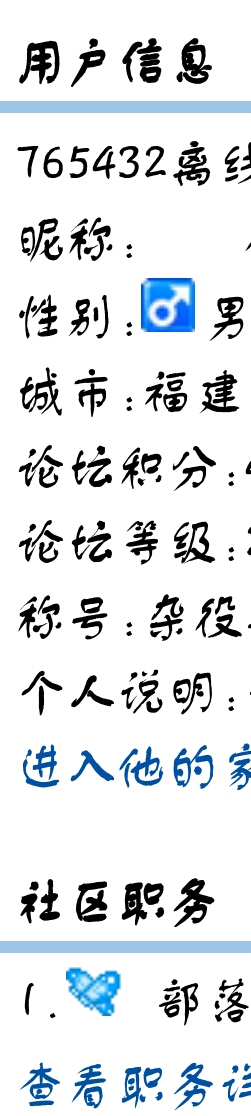 用户信息
765432离线
昵称：
性别：男
城市：福建
论坛积分：
论坛等级：
称号：杂役
个人说明：
进入他的家
社区职务
1. 部落
查看职务详